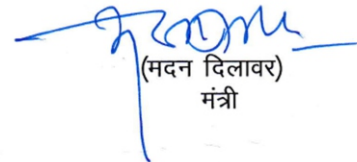 (मदन दिलावर)
मंत्री